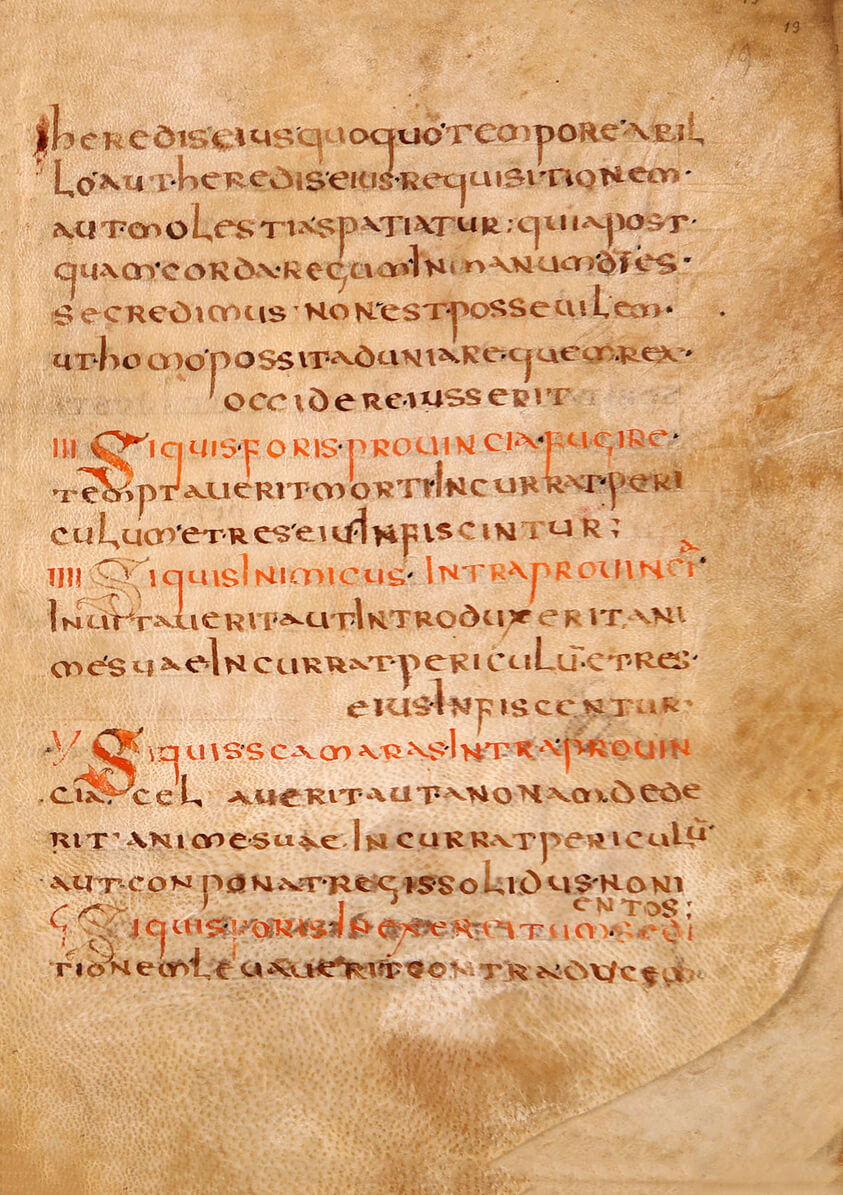 19
heredis eius quoquo tempore ab il
lo aut heredis eius requisitionem·
aut molestias patiatur; quia post·
quam corda regum in manum d̄i es·
se credimus non est possevilem·
ut homo possit aduniare quem rex·
occidere iusserit
III Si quis foris provincia fugire·
temptaverit morti incurrat peri
culum et res eius infiscintur;
IIII Si quis inimicus intra provincia
invitaverit aut introduxerit ani
me suae incurrat periculū et res·
eius infiscentur·
V Si quis scamaras intra provin
cia· celaverit aut anonam dede
rit animesuae incurrat periculū
aut conponat regis solidus noni
entos;
Si quis foris in exercitum sedi
tionem levaverit contra ducem